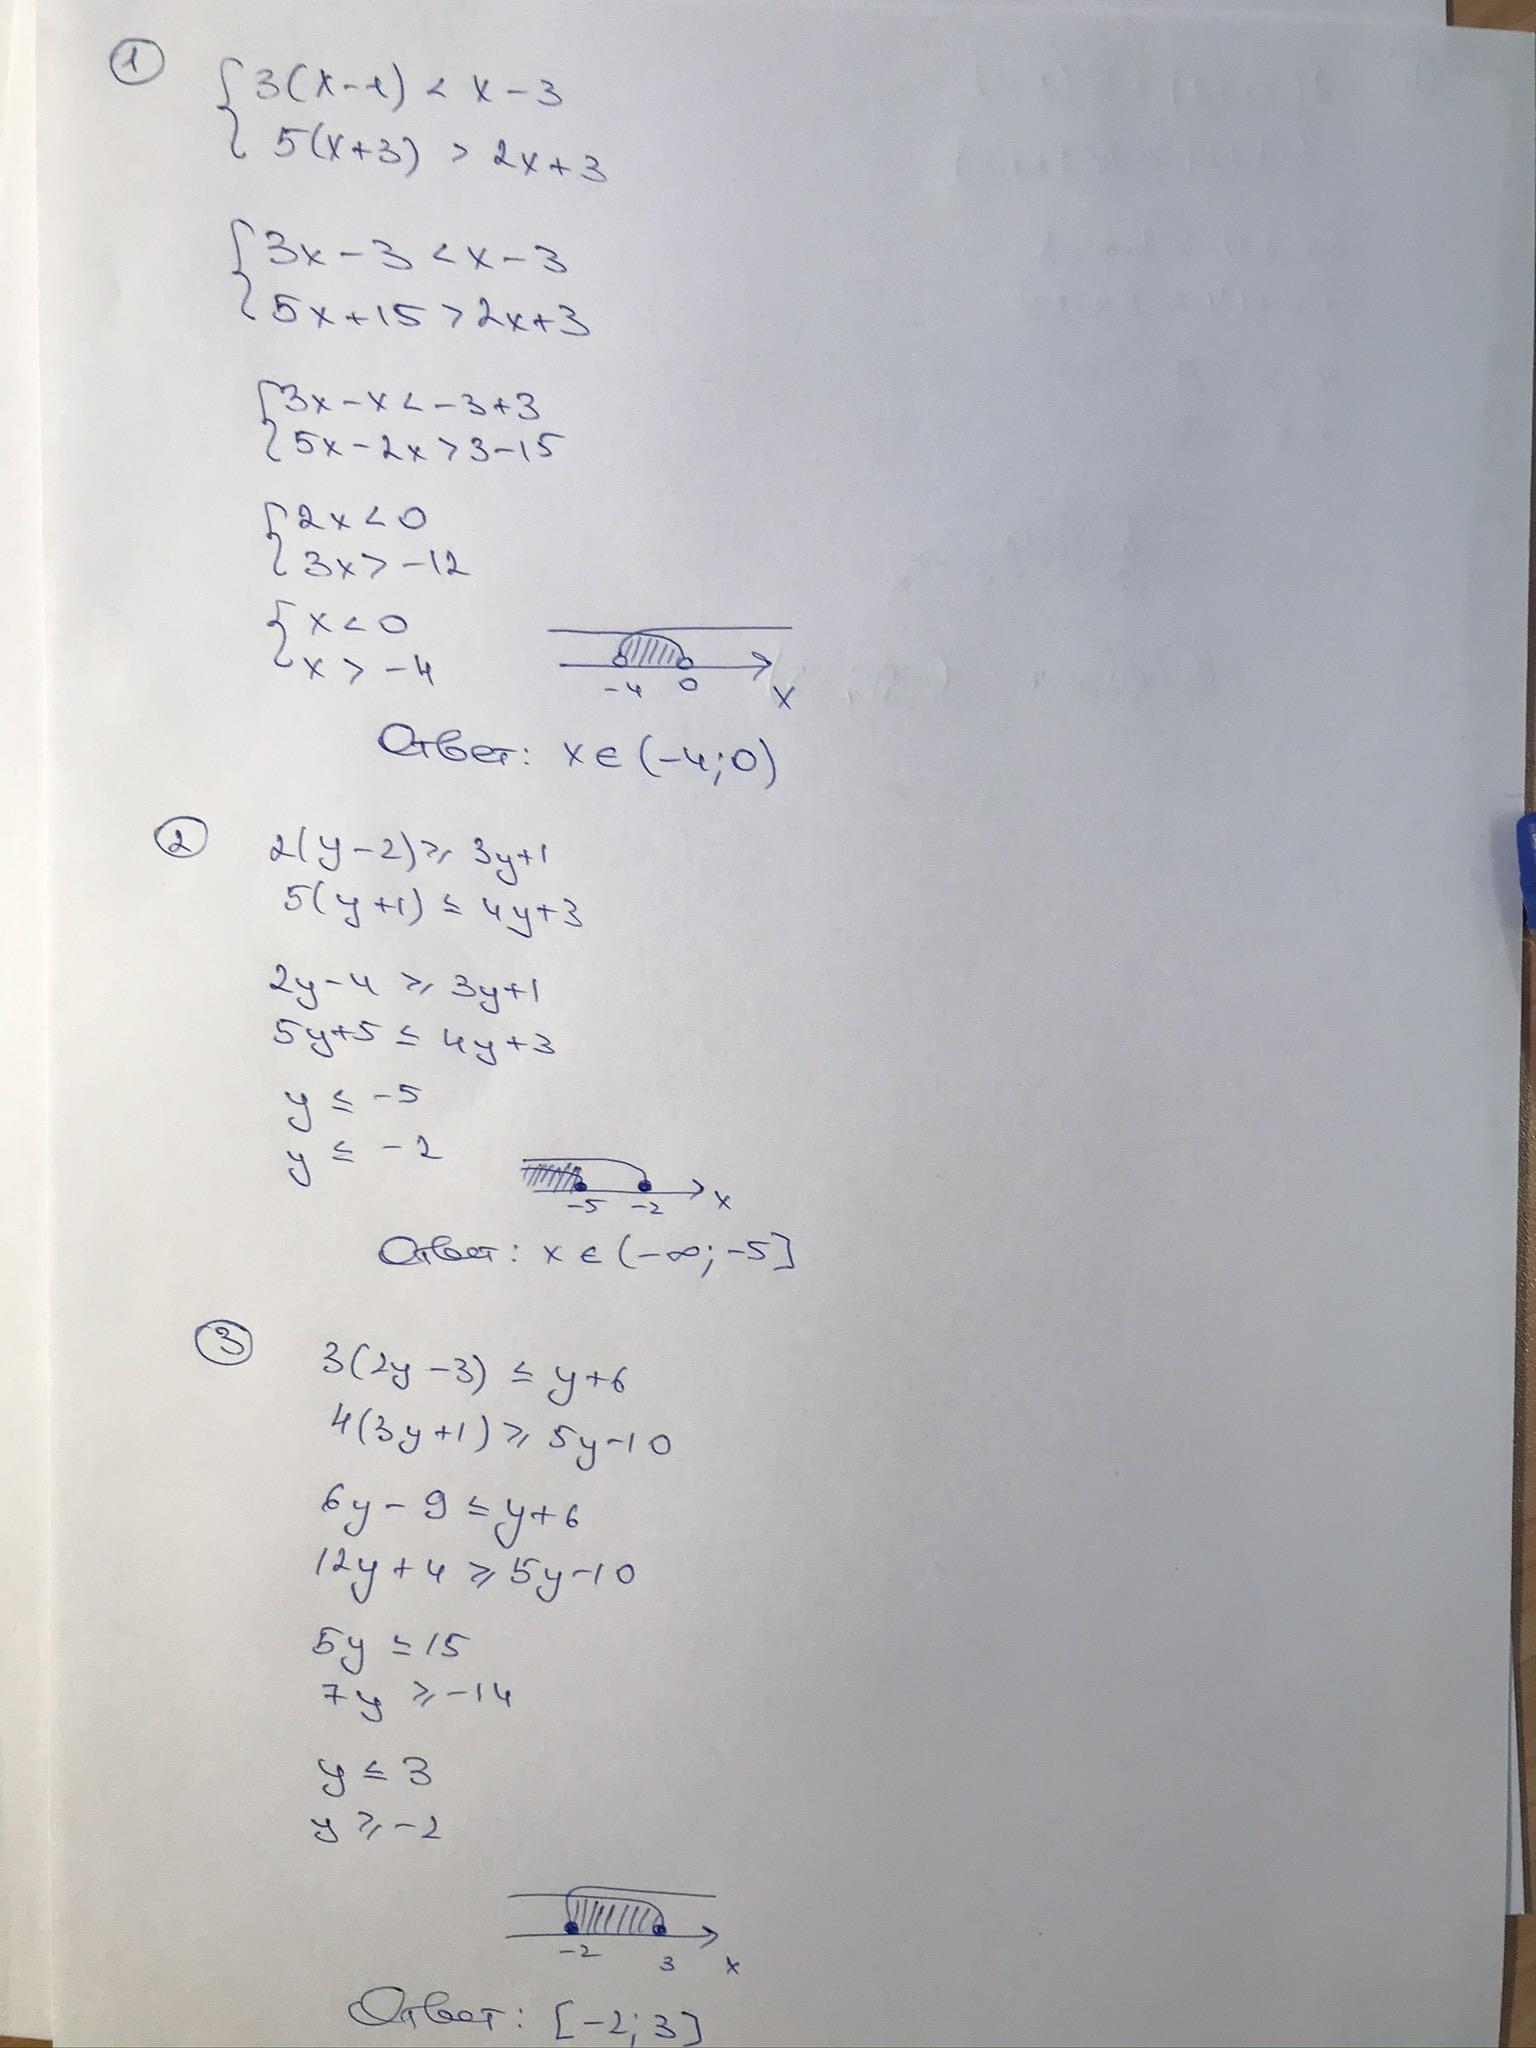 1
3(x-1) < x-3
5(x+3) > 2x+3
3x-3 < x-3
5x+15 > 2x+3
3x-x < -3+3
5x-2x > 3-15
2x < 0
3x > -12
x < 0
x > -4
-4 0 x
Ответ: x ∈ (-4; 0)
2
2(y-2) ⩾ 3y+1
5(y+1) ≤ 4y+3
2y-4 ⩾ 3y+1
5y+5 ≤ 4y+3
y ≤ -5
y ≤ -2
-5 -2 x
Ответ: x ∈ (-∞; -5]
3
3(2y-3) ≤ y+6
4(3y+1) ⩾ 5y-10
6y-9 ≤ y+6
12y+4 ⩾ 5y-10
5y ≤ 15
7y ⩾ -14
y ≤ 3
y ⩾ -2
-2 3 x
Ответ: [-2; 3]